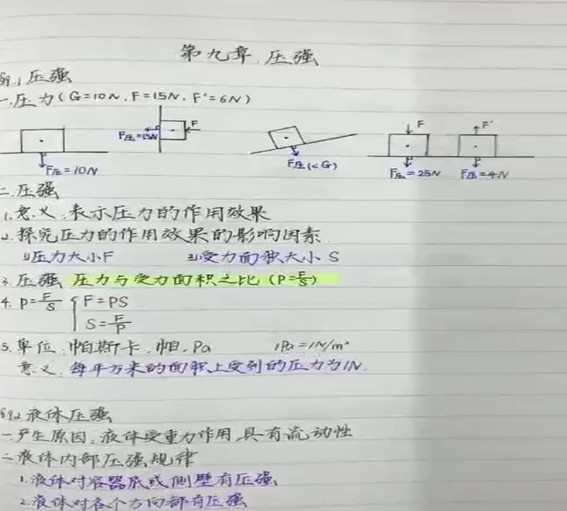 第九章 压强
§9.1 压强
一.压力(G=10N, F=15N, F'=6N)
F压=10N
F压=15N F
F压(<G)
F F压=25N
F' F压=4N
二.压强
1.意义:表示压力的作用效果
2.探究压力的作用效果的影响因素
①压力大小F ②受力面积大小 S
3.压强 压力与受力面积之比(P=F/S)
4. P=F/S { F=PS
S=F/P
5.单位:帕斯卡、帕、Pa 1Pa=1N/m²
意义:每平方米的面积上受到的压力为1N.
§9.2 液体压强
一产生原因:液体受重力作用,具有流动性
二液体内部压强规律
1.液体对容器底或侧壁有压强
2.液体对各个方向都有压强